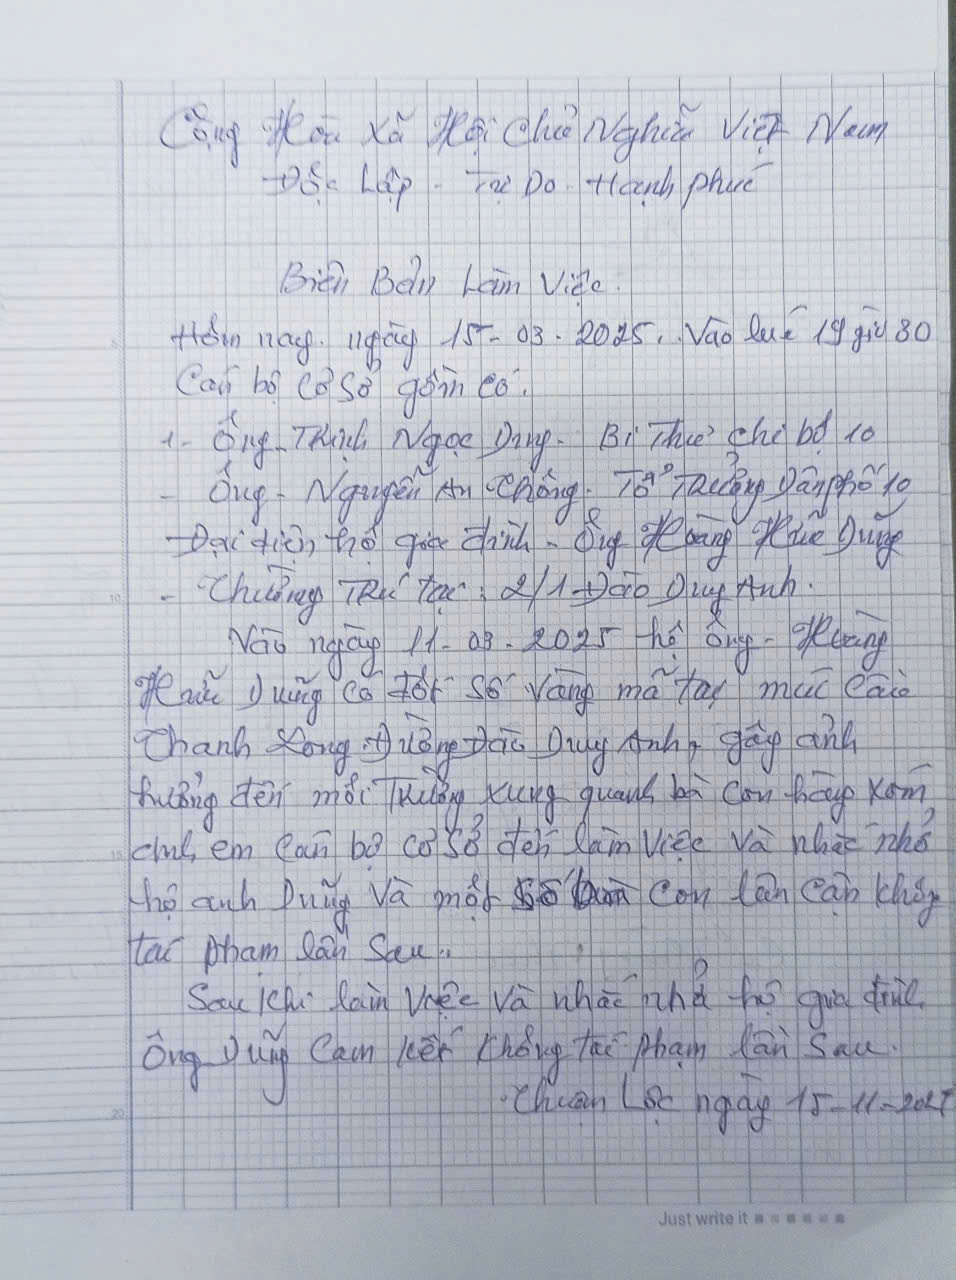 Cộng Hòa Xã Hội Chủ Nghĩa Việt Nam
Độc Lập - Tự Do - Hạnh phúc
Biên Bản Làm Việc.
Hôm nay. ngày 15-03-2025. Vào lúc 19 giờ 30
Cán bộ cơ sở gồm có.
1- Ông Thịnh Ngọc Dũng - Bí Thư chi bộ 10
- Ông - Nguyễn An Thông - Tổ Trưởng Dân phố 10
- Đại diện hộ gia đình - Ông Hoàng Hữu Dũng
- Thường Trú tại: 2/1 Đào Duy Anh.
Vào ngày 11-03-2025 hộ ông - Hoàng
Hữu Dũng có đốt số vàng mã tại múi Cầu
Thanh Long. Đường Đào Duy Anh, gây ảnh
hưởng đến môi Trường xung quanh bà con hàng xóm
anh em Cán bộ cơ sở đến làm việc và nhắc nhở
hộ anh Dũng và một số bà con lân cận không
tái phạm lần sau..
Sau khi làm việc và nhắc nhở hộ gia đình.
Ông Dũng Cam kết không tái phạm lần sau.
Thuận Lộc ngày 15-11-2025
Just write it